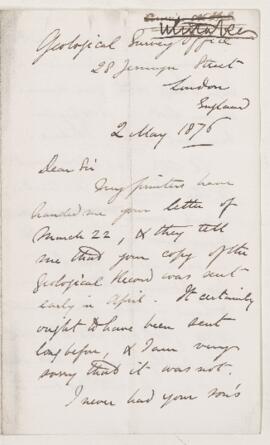 Mistakes
Geological Survey Office
28 Jermyn Street
London
England
2 May 1876
Dear Sir
My printers have
handed me your letter of
March 22, & they tell
me that your copy of the
Geological Record was sent
early in April. It certainly
ought to have been sent
long before, & I am very
sorry that it was not.
I never had your son's